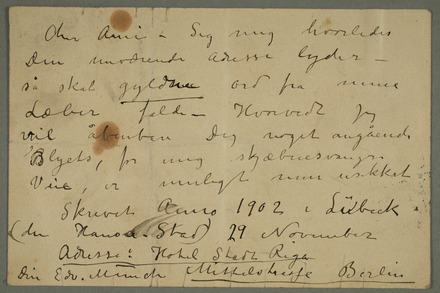 Cher Ami – Sig mig hvorledes
Din nuværende adresse lyder –
så skal gyldne ord fra mine
Læber falde – Hvorvedt jeg
vil åbenbare Dig noget angående
Blyets, for mig skjæbnesvangre
Vиe, er muligt men usikkert
Skrevet Anno 1902 i Lübeck
(den Hansa-Stad) 29 November
Adresse: Hotel Stadt Riga
din Edv. Munch Mittelstrasse Berlin